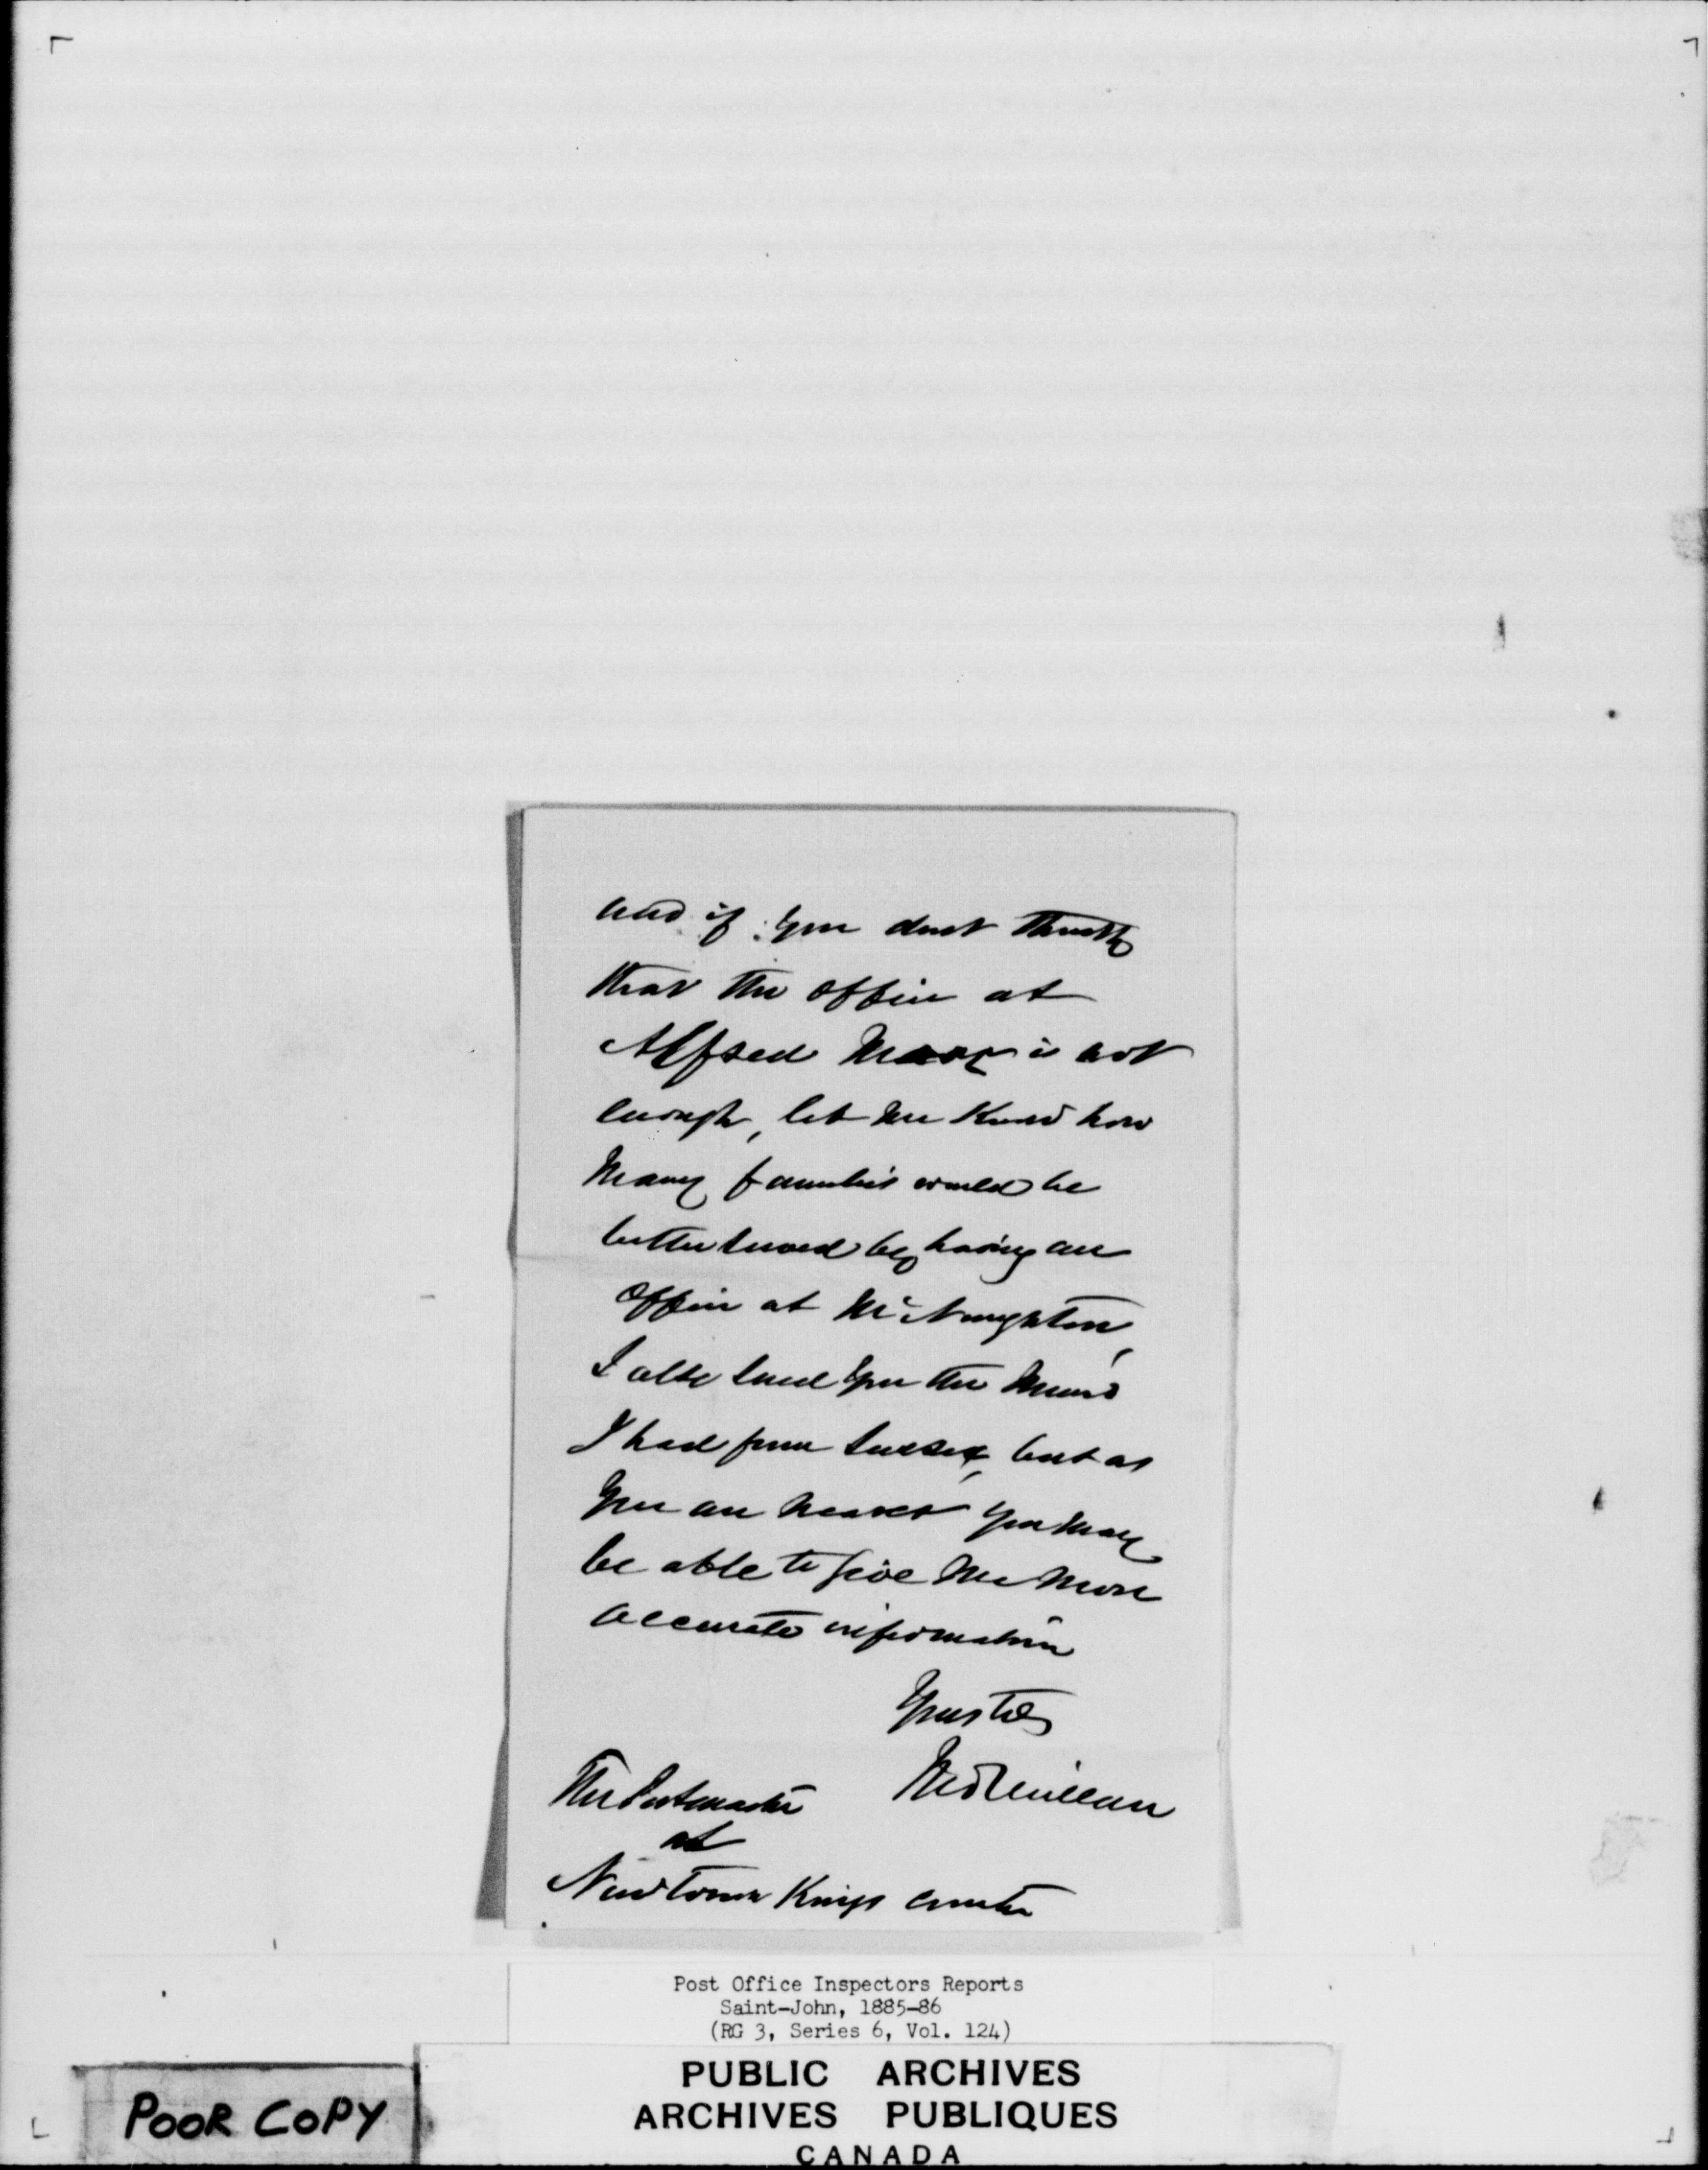 and if you dont think
that the office at
Alfred is not
enough, let me know how
many families would be
better served by having an
office at McNaughton,
I also send you the memo
I had from Sussex, but as
you are nearer you may
be able to give me more
accurate information
Yours
The Postmaster McMillan
at
Newtown Kings County
Post Office Inspectors Reports
Saint-John, 1885-86
(RG 3, Series 6, Vol. 124)
PUBLIC ARCHIVES
ARCHIVES PUBLIQUES
CANADA
POOR COPY